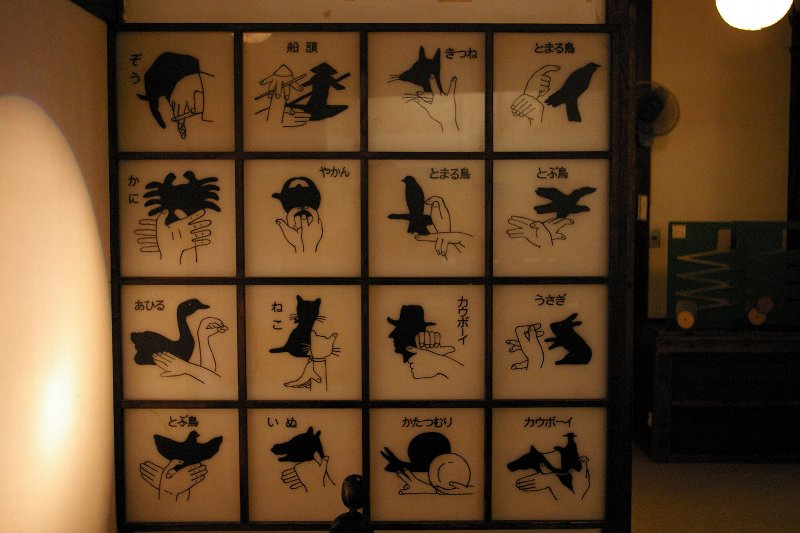 ぞう
船頭
きつね
とまる鳥
かに
やかん
とまる鳥
とぶ鳥
あひる
ねこ
カウボーイ
うさぎ
とぶ鳥
いぬ
かたつむり
カウボーイ